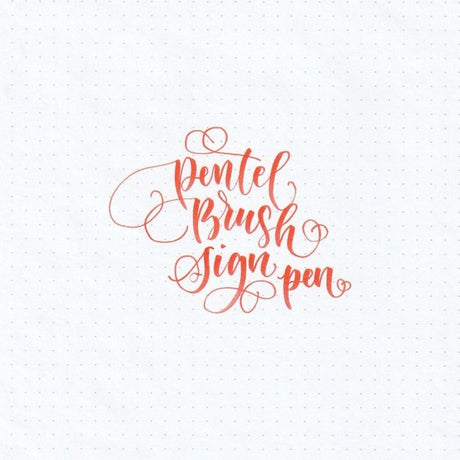 pentel
Brush
sign pen